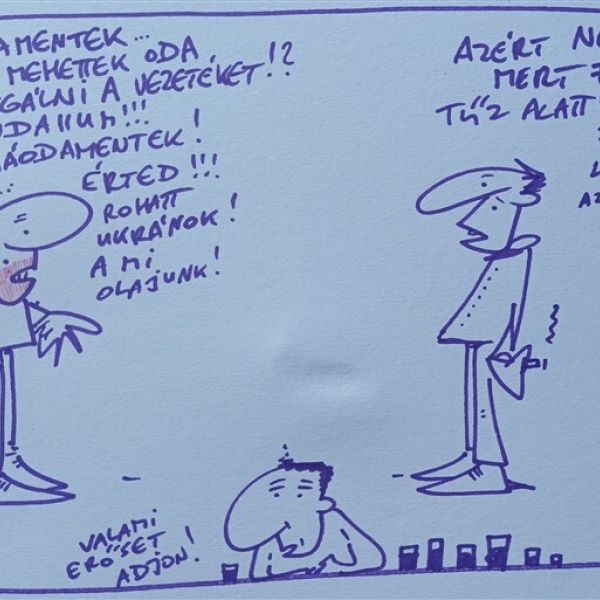 AMENTEK...
MEHETTEK ODA
GÁLNI A VEZETÉKET!?
ODAIIUM!!!
ÁODAMENTEK!
... ÉRTED!!!
ROHATT
UKRÁNOK!
A MI
OLAJUNK!
AZÉRT
MERT
TŰZ ALATT
VALAMI
ERŐSET
ADJON!